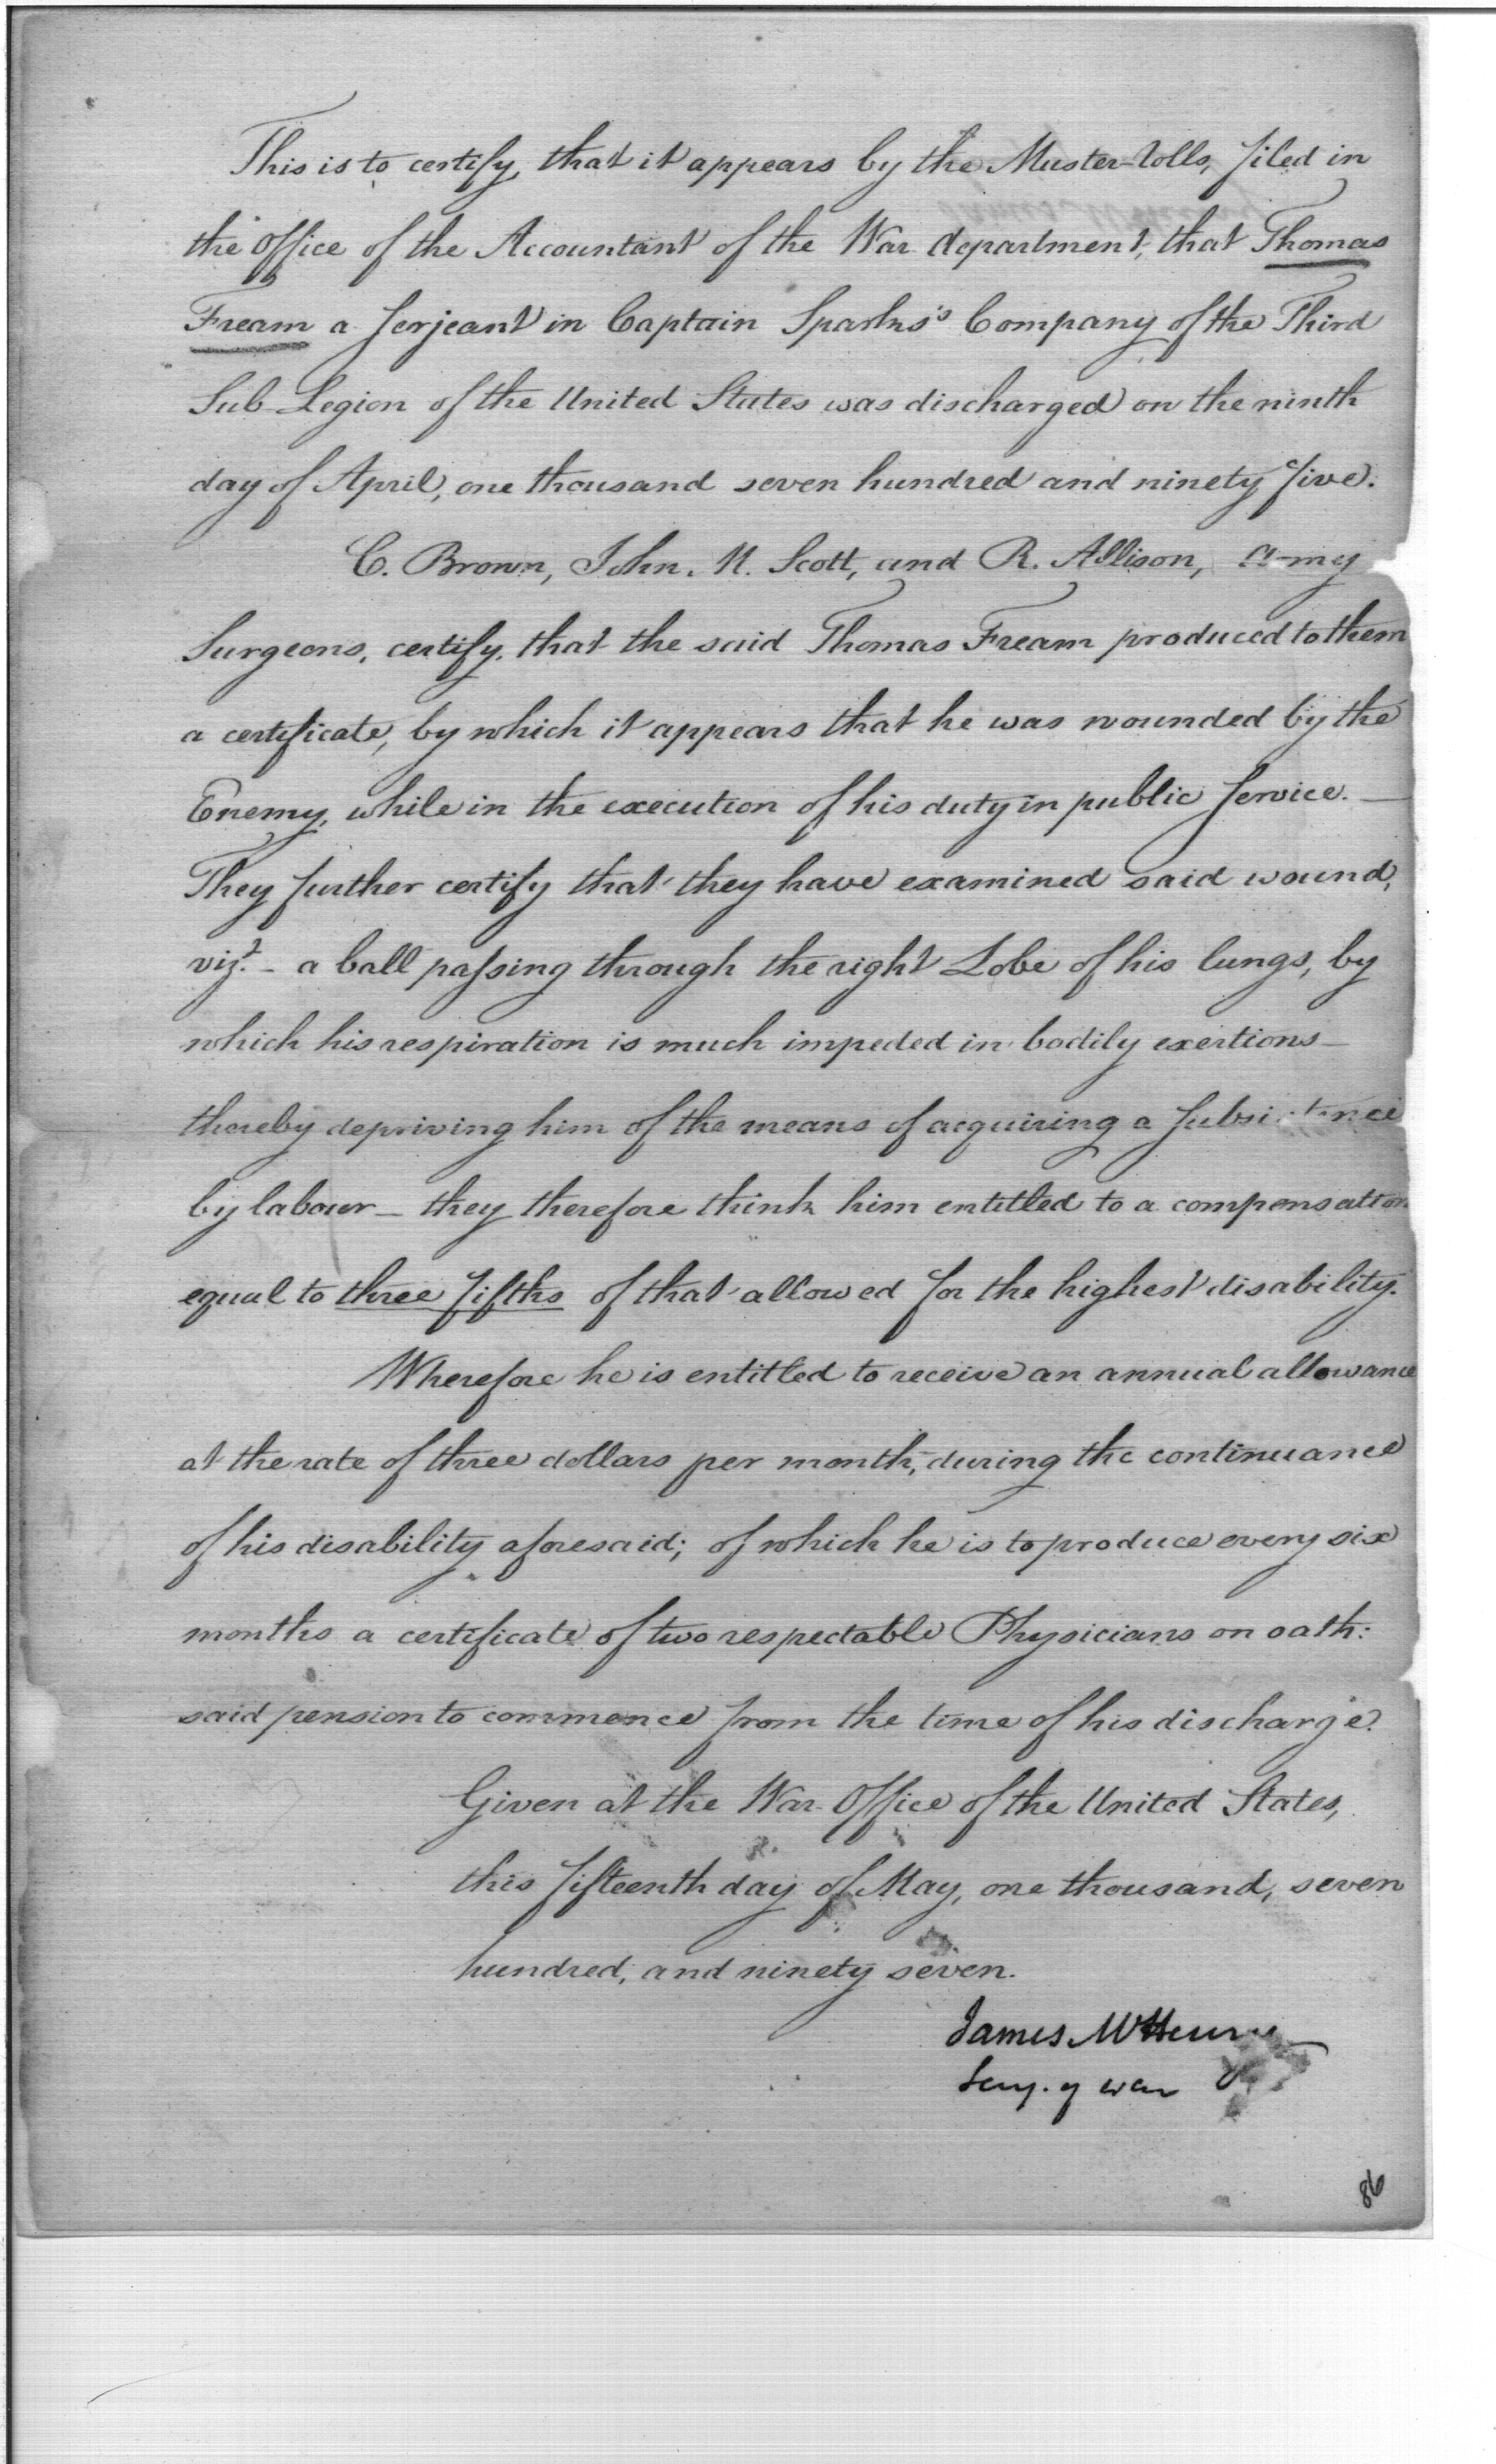 This is to certify, that it appears by the Muster-Rolls, filed in
the Office of the Accountant of the War department, that Thomas
Fream a Serjeant in Captain Sparks's Company of the Third
Sub-Legion of the United States was discharged on the ninth
day of April, one thousand seven hundred and ninety five.
C. Brown, John. M. Scott, and R. Allison, Army
Surgeons, certify, that the said Thomas Fream produced to them
a certificate, by which it appears that he was wounded by the
Enemy, while in the execution of his duty in public Service. —
They further certify that they have examined said wound,
vizt. - a ball passing through the right Lobe of his lungs, by
which his respiration is much impeded in bodily exertions —
thereby depriving him of the means of acquiring a Subsistence
by labour — they therefore think him entitled to a compensation
equal to three fifths of that allowed for the highest disability.
Wherefore he is entitled to receive an annual allowance
at the rate of three dollars per month, during the continuance
of his disability aforesaid; of which he is to produce every six
months a certificate of two respectable Physicians on oath:
said pension to commence from the time of his discharge.
Given at the War Office of the United States,
this fifteenth day of May, one thousand, seven
hundred, and ninety seven.
James McHenry
Secy. of war
86